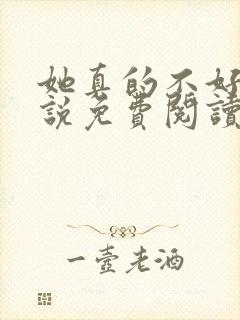 她真的不好
說免費閱讀
一壺老酒